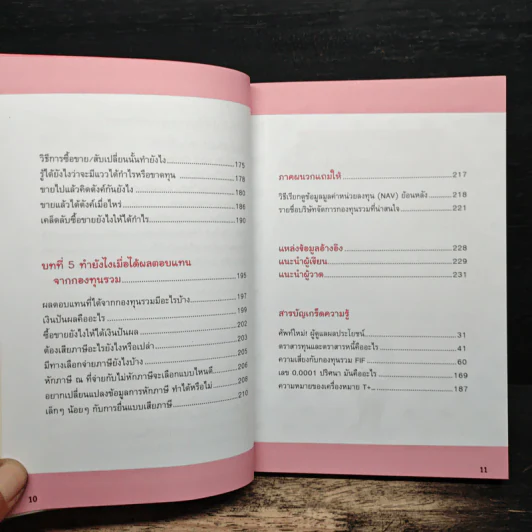 วิธีการซื้อขาย/สับเปลี่ยนนั้นทำยังไง 175
รู้ได้ยังไงว่าจะมีแววได้กำไรหรือขาดทุน 178
ขายไปแล้วคิดตังค์กันยังไง 180
ขายแล้วได้ตังค์เมื่อไหร่ 186
เคล็ดลับซื้อขายยังไงให้ได้กำไร 190
บทที่ 5 ทำยังไงเมื่อได้ผลตอบแทน
จากกองทุนรวม 195
ผลตอบแทนที่ได้จากกองทุนรวมมีอะไรบ้าง 197
เงินปันผลคืออะไร 199
ซื้อขายยังไงให้ได้เงินปันผล 202
ต้องเสียภาษีอะไรยังไงหรือเปล่า 203
มีทางเลือกจ่ายภาษียังไงบ้าง 205
หักภาษี ณ ที่จ่ายกับไม่หักภาษีจะเลือกแบบไหนดี 206
อยากเปลี่ยนแปลงข้อมูลการหักภาษี ทำได้หรือไม่ 208
เล็กๆ น้อยๆ กับการยื่นแบบเสียภาษี 210
10
ภาคผนวกแถมให้ 217
วิธีเรียกดูข้อมูลมูลค่าหน่วยลงทุน (NAV) ย้อนหลัง 218
รายชื่อบริษัทจัดการกองทุนรวมที่น่าสนใจ 221
แหล่งข้อมูลอ้างอิง 228
แนะนำผู้เขียน 229
แนะนำผู้วาด 231
สารบัญเกร็ดความรู้
ศัพท์ใหม่! ผู้ดูแลผลประโยชน์ 31
ตราสารทุนและตราสารหนี้คืออะไร 41
ความเสี่ยงกับกองทุนรวม FIF 60
เลข 0.0001 ปริศนา มันคืออะไร 169
ความหมายของเครื่องหมาย T+ 187
11